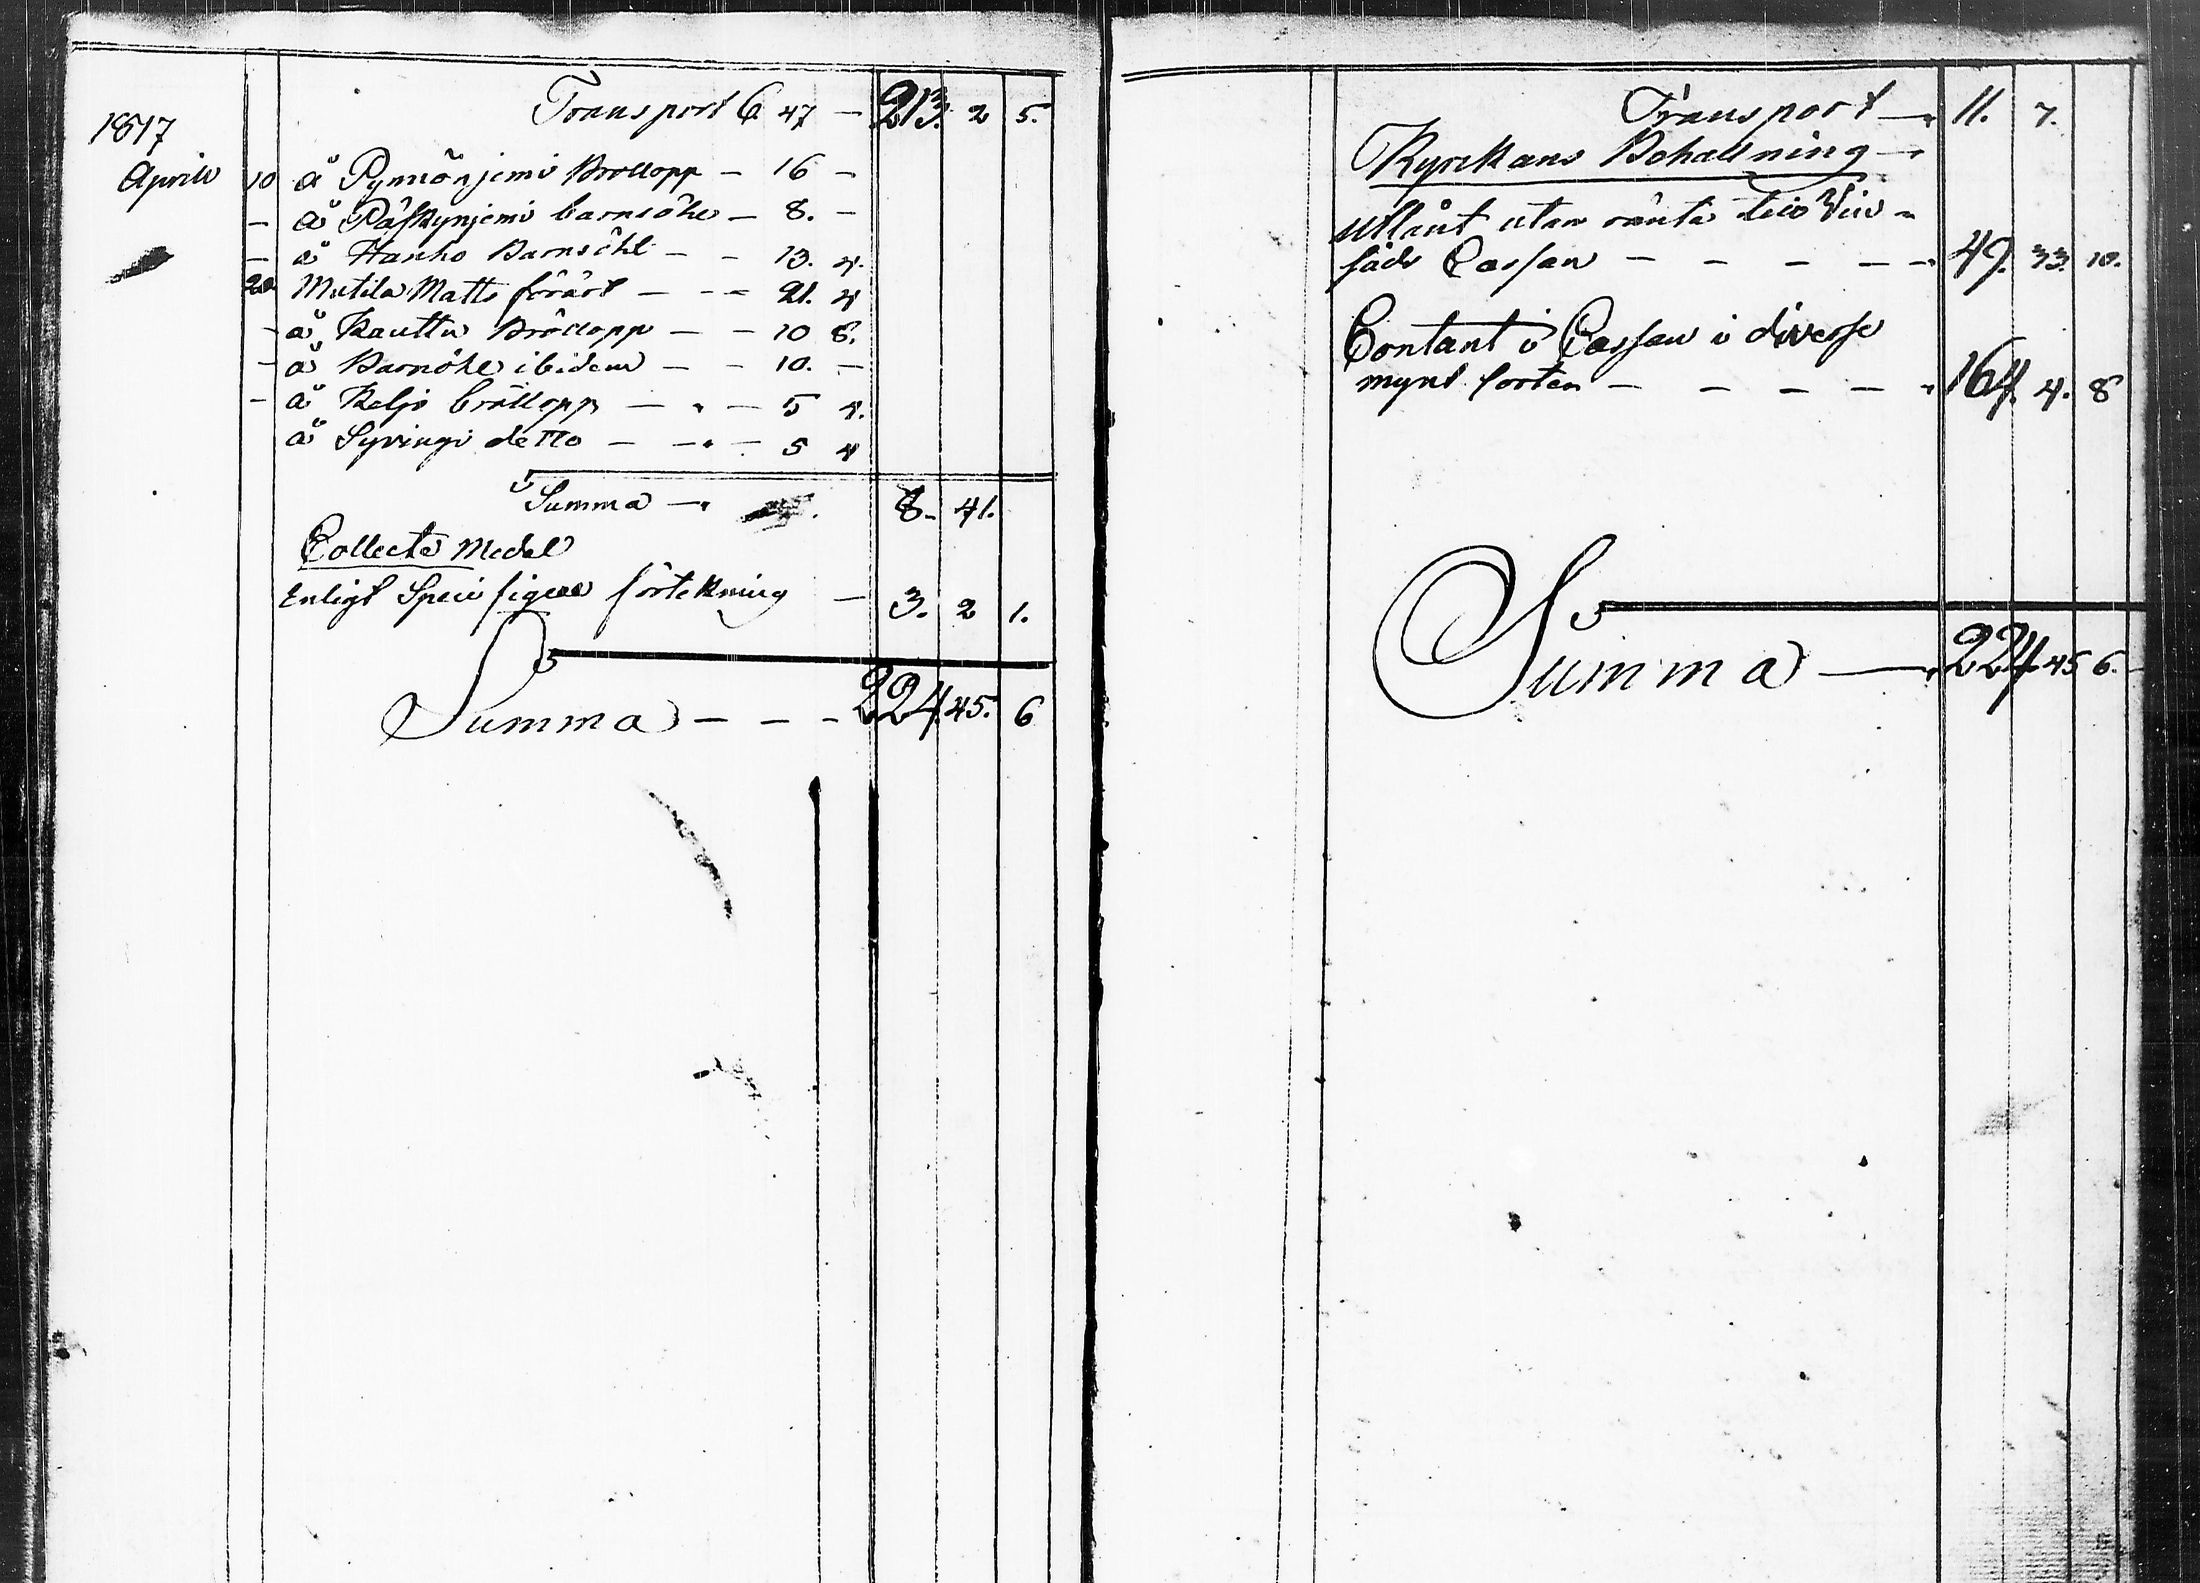 Transport 6 47 — 213. 2 5.
1817
Aprill 10 å Pynnönjemi Bröllopp — 16 —
— å Päskynjemi barnsöhl — 8. —
— å Hanho Barnsöhl — — 13. 4.
20 Mutila Matts förärt — — — 21. 4
— å Kauttu Bröllopp — — 10 8.
— å Barnöhl ibidem — — 10. —
— å Keljo bröllopp — — 5 4.
å Syvingi detto — — — 5 4
Summa — 8. 41.
Collecte Medel
Enligt Specifigerad förtekning — 3. 2 1.
Summa — — — 224. 45. 6
Transport — 11. 7.
Kyrckans Behållning —
Utlånt utan ränta till
säds Cassan — — — — — 49. 33. 10.
Contant i Cassan i diverse
mynt sorter — — — — — 164. 4. 8
Summa — 224 45 6.